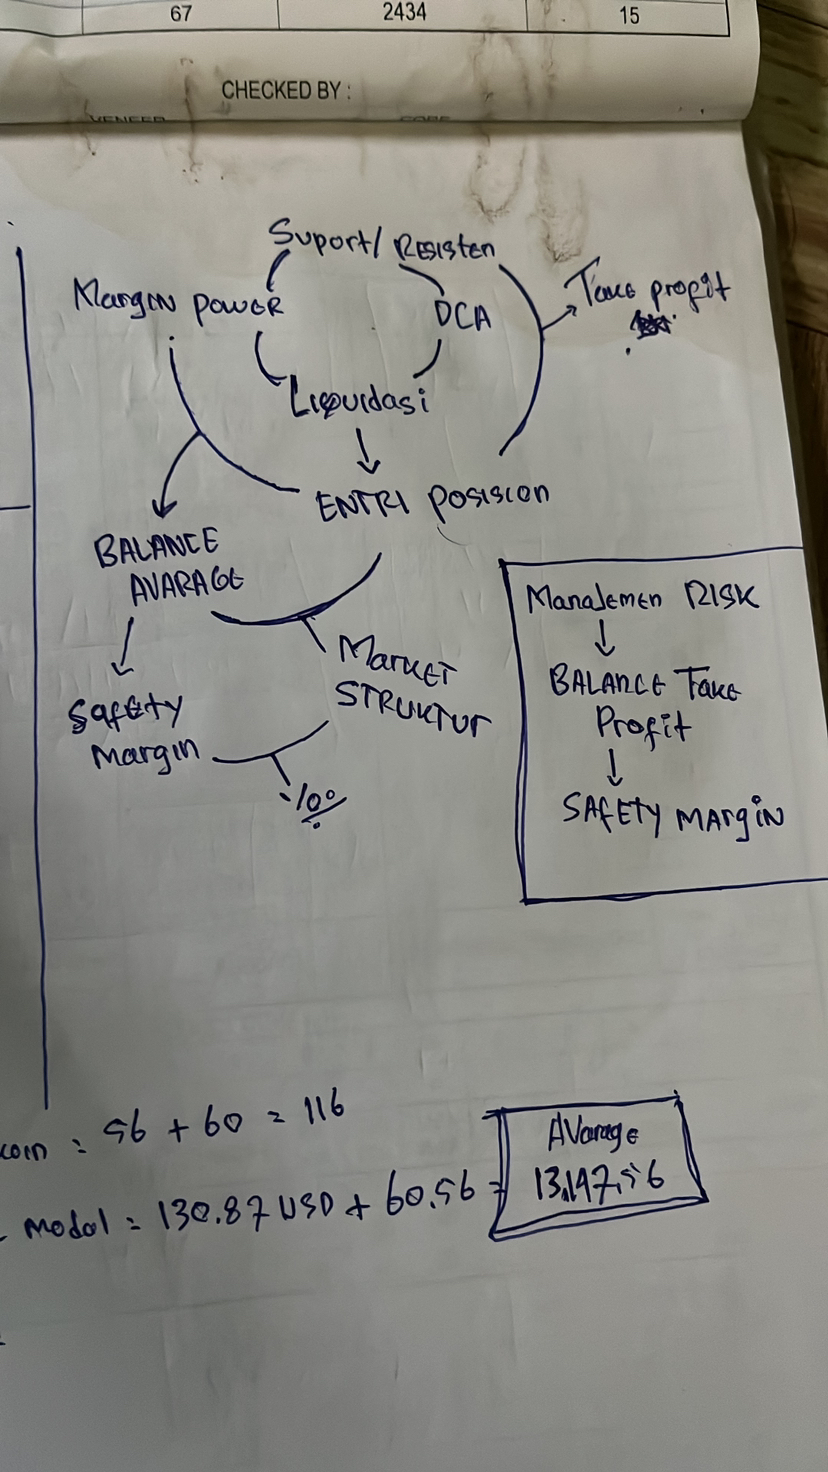 67 2434 15
CHECKED BY :
Suport/ Resisten
Margin power
DCA
Take profit
Liquidasi
ENTRI posision
BALANCE
AVARAGE
Market
STRUKTUR
Safety
Margin
Manajemen RISK
BALANCE Take
Profit
SAFETY MARgiN
coin = 56 + 60 = 116
modal = 130.87 USD + 60.56 =
AVarage
13,147,56